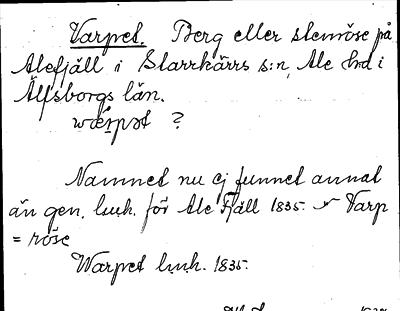 Varpet. Berg eller stenröse på
Alefjäll i Starrkärrs s:n, Ale hd i
Älfsborgs län.
wærpət ?
Namnet nu ej funnet annat
än gen. luh. för Ale Fjäll 1835. Varp
= röse
Warpet luh. 1835.